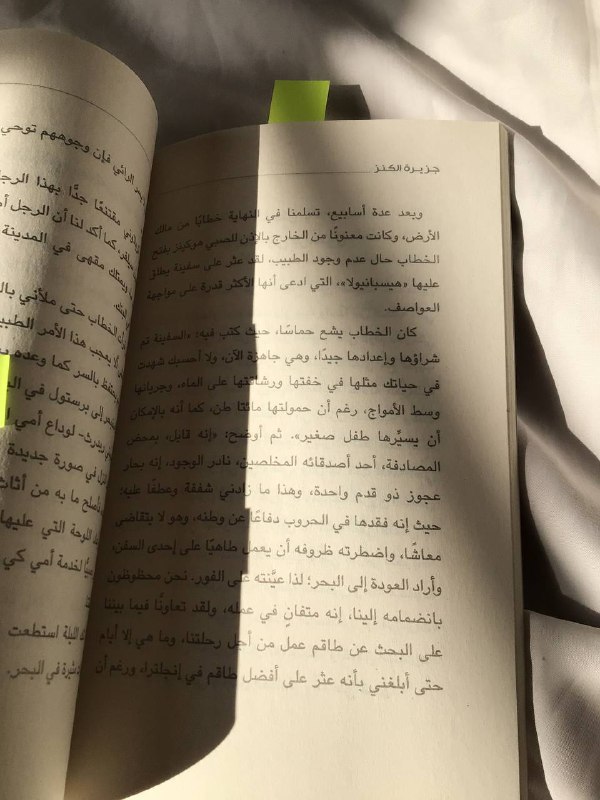 جزيرة الكنز
وبعد عدة أسابيع، تسلمنا في النهاية خطابًا من مالك
الأرض، وكانت معنونًا من الخارج بالإذن للصبي هوكينز بفتح
الخطاب حال عدم وجود الطبيب، لقد عثر على سفينة يطلق
عليها «هيسبانيولا»، التي ادعى أنها الأكثر قدرة على مواجهة
العواصف.
كان الخطاب يشع حماسًا، حيث كتب فيه: «السفينة تم
شراؤها وإعدادها جيدًا، وهي جاهزة الآن، ولا أحسبك شهدت
في حياتك مثلها في خفتها ورشاقتها على الماء، وجريانها
وسط الأمواج، رغم أن حمولتها مائتا طن، كما أنه بالإمكان
أن يسيِّرها طفل صغير». ثم أوضح: «إنه قابل، بمحض
المصادفة، أحد أصدقائه المخلصين، نادر الوجود، إنه بحار
عجوز ذو قدم واحدة، وهذا ما زادني شفقة وعطفًا عليه؛
حيث إنه فقدها في الحروب دفاعًا عن وطنه، وهو لا يتقاضى
معاشًا، واضطرته ظروفه أن يعمل طاهيًا على إحدى السفن،
وأراد العودة إلى البحر؛ لذا عيَّنته على الفور. نحن محظوظون
بانضمامه إلينا، إنه متفانٍ في عمله، ولقد تعاونَّا فيما بيننا
على البحث عن طاقم عمل من أجل رحلتنا، وما هي إلا أيام
حتى أبلغني بأنه عثر على أفضل طاقم في إنجلترا، ورغم أن
الرائي فإن وجوههم توحي
مقتنعًا جدًّا بهذا
كما أكد لنا أن الرجل
مقهى في المدينة
الخطاب حتى ملأني
يعجب هذا الأمر
بالسر كما وعده
إلى برستول في
لوداع أمي
في صورة جديدة
ما به من
اللوحة التي عليها
لخدمة أمي كي
الليلة استطعت
في البحر.